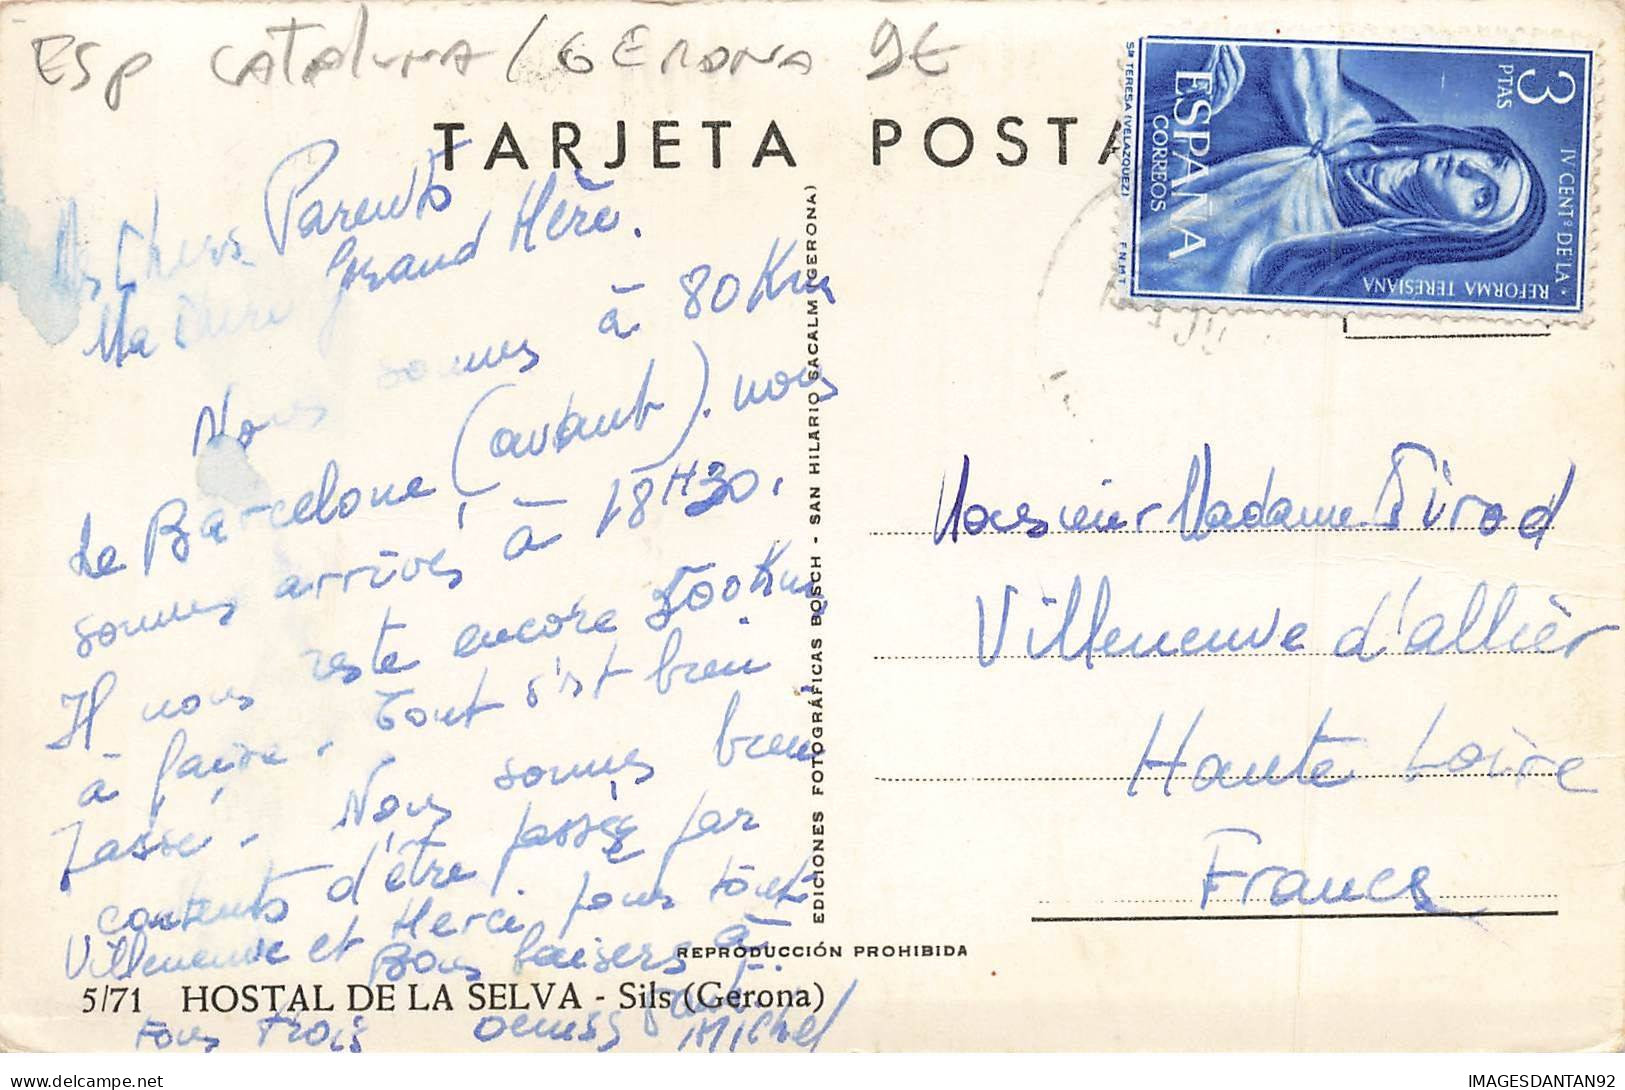 ESP CATALUNA / GERONA 9E
TARJETA POSTA
3 PTAS
IV CENTº DE LA
REFORMA TERESIANA
ESPAÑA
CORREOS
Sta TERESA (VELAZQUEZ)
F.N.M.T
Mes Chers Parents
Ma Chère Grand Mère.
Nous sommes à 80 Km
de Barcelone (avant). nous
sommes arrivés à 18H30.
Il nous reste encore 500 Km
à faire. Tout s'est bien
passé. Nous sommes bien
contents d'être passés par
Villeneuve et Merci pour tout
Bons baisers à
Tous Trois
Michel
EDICIONES FOTOGRÁFICAS BOSCH - SAN HILARIO SACALM (GERONA)
Monsieur Madame Pirod
Villeneuve d'allièr
Haute Loire
France
REPRODUCCIÓN PROHIBIDA
5/71 HOSTAL DE LA SELVA - Sils (Gerona)
IMAGESDANTAN92